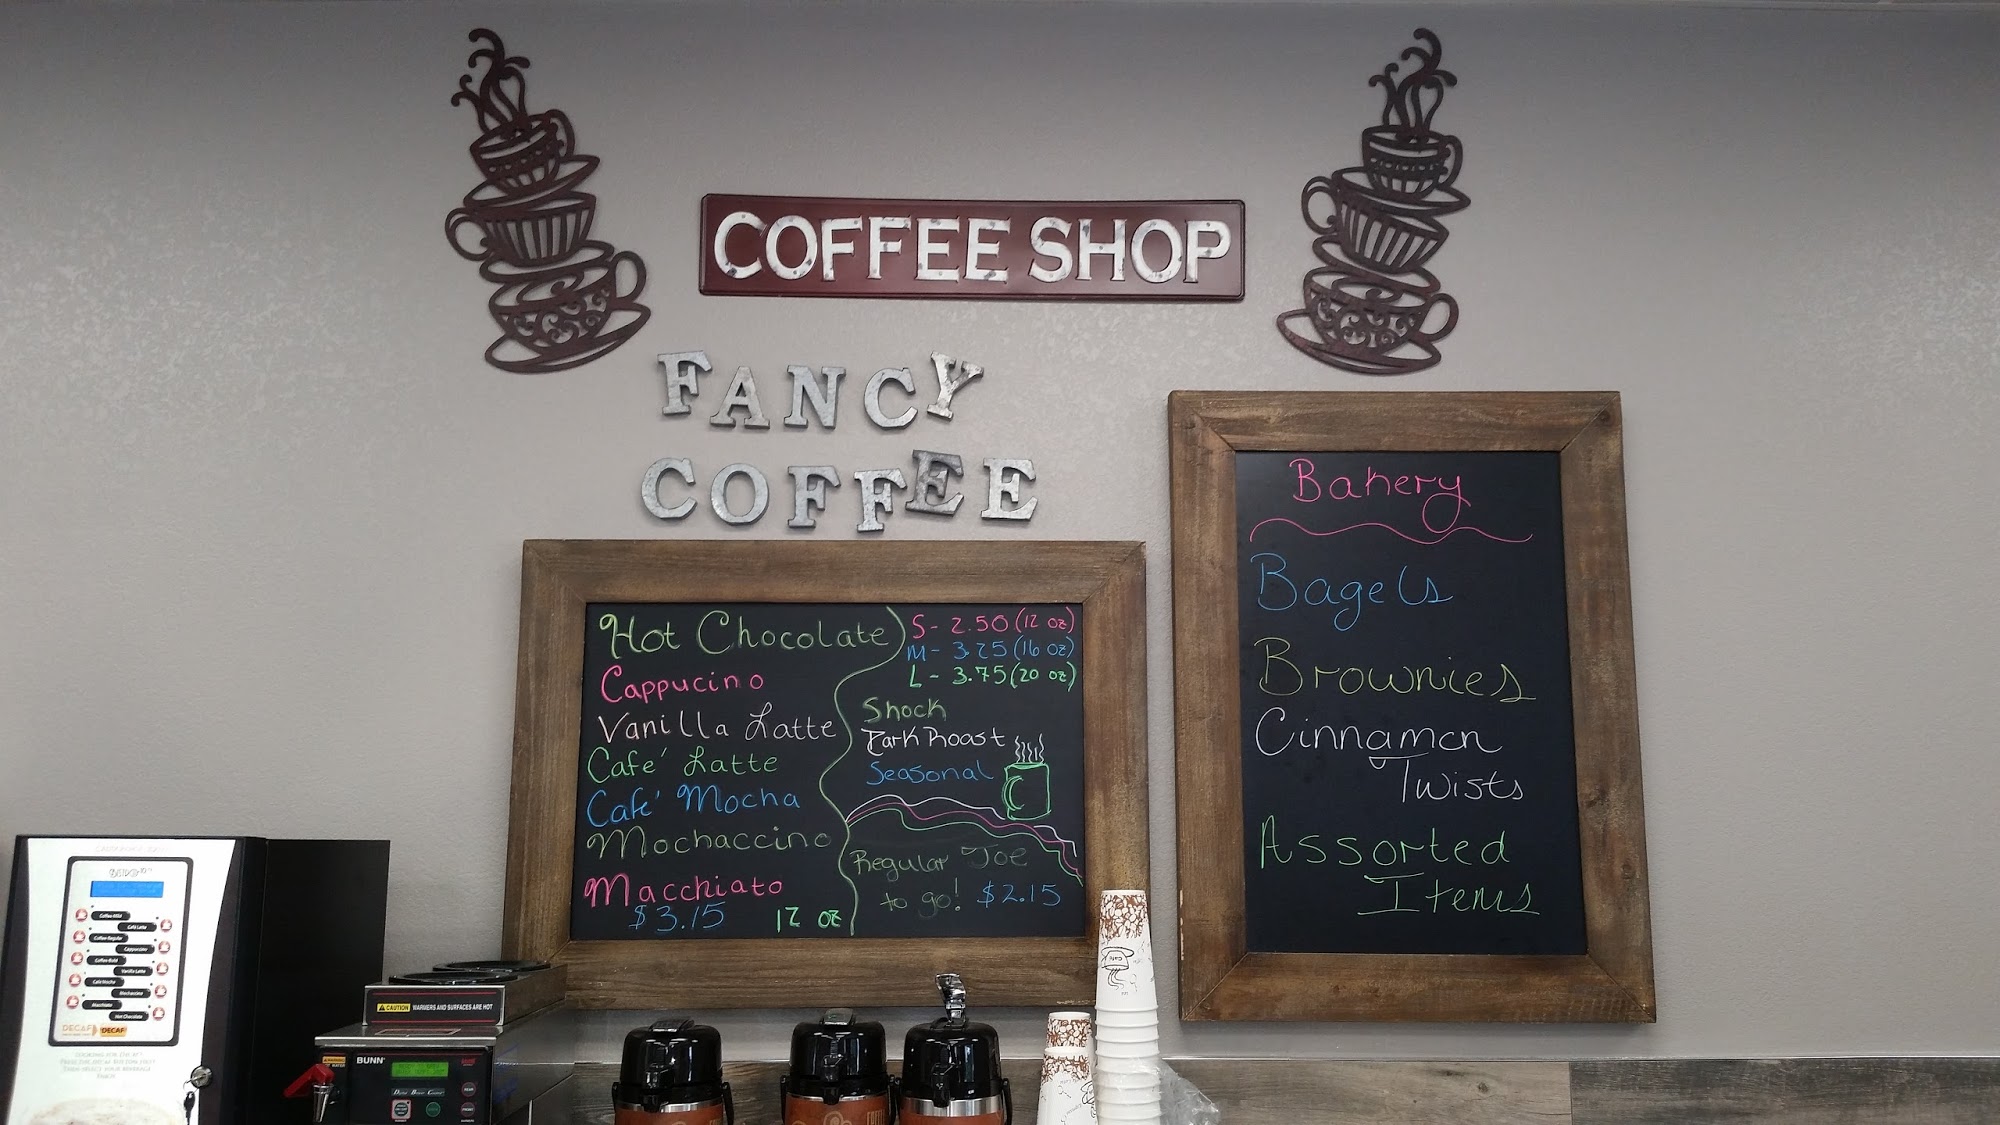 COFFEE SHOP
FANCY
COFFEE
Hot Chocolate
Cappucino
Vanilla Latte
Café Latte
Café Mocha
Mochaccino
Macchiato
$3.15 12 oz
S- 2.50 (12 oz)
M- 3.25 (16 oz)
L- 3.75 (20 oz)
Shock
Dark Roast
Seasonal
Regular Joe
to go! $2.15
Bakery
Bagels
Brownies
Cinnamon
Twists
Assorted
Items
Café Latte
Cappuccino
Vanilla Latte
Café Mocha
Macchiato
Hot Chocolate
DECAF DECAF
CAUTION WARMERS AND SURFACES ARE HOT
BUNN